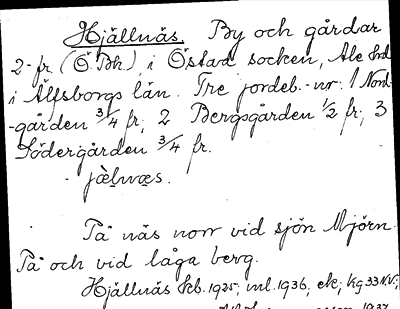 Hjällnäs. By och gårdar
2 fr. (Ö. Bh.), i Östad socken, Ale hrd
i Älfsborgs län. Tre jordeb.-nr: 1 Nord-
-gården 3/4 fr; 2 Bergsgården 1/2 fr; 3
Södergården 3/4 fr.
jæ̀lnæs.
På näs norr vid sjön Mjörn.
På och vid låga berg.
Hjällnäs Skb. 1925; inl. 1936, ek; kg 33 N.V.;
1937